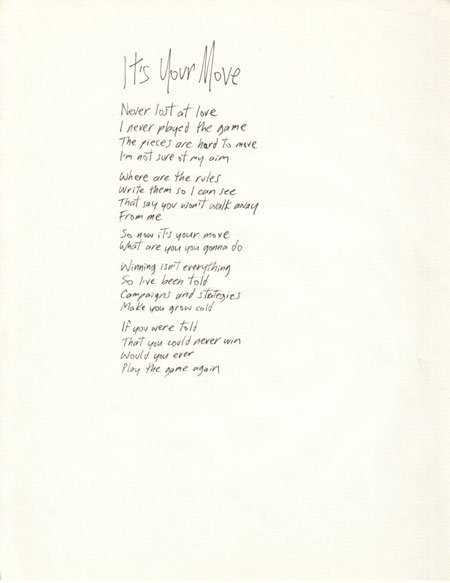 It's Your Move
Never lost at love
I never played the game
The pieces are hard to move
I'm not sure of my aim
Where are the rules
Write them so I can see
That say you won't walk away
From me
So now it's your move
What are you you gonna do
Winning isn't everything
So I've been told
Campaigns and strategies
Make you grow cold
If you were told
That you could never win
Would you ever
Play the game again